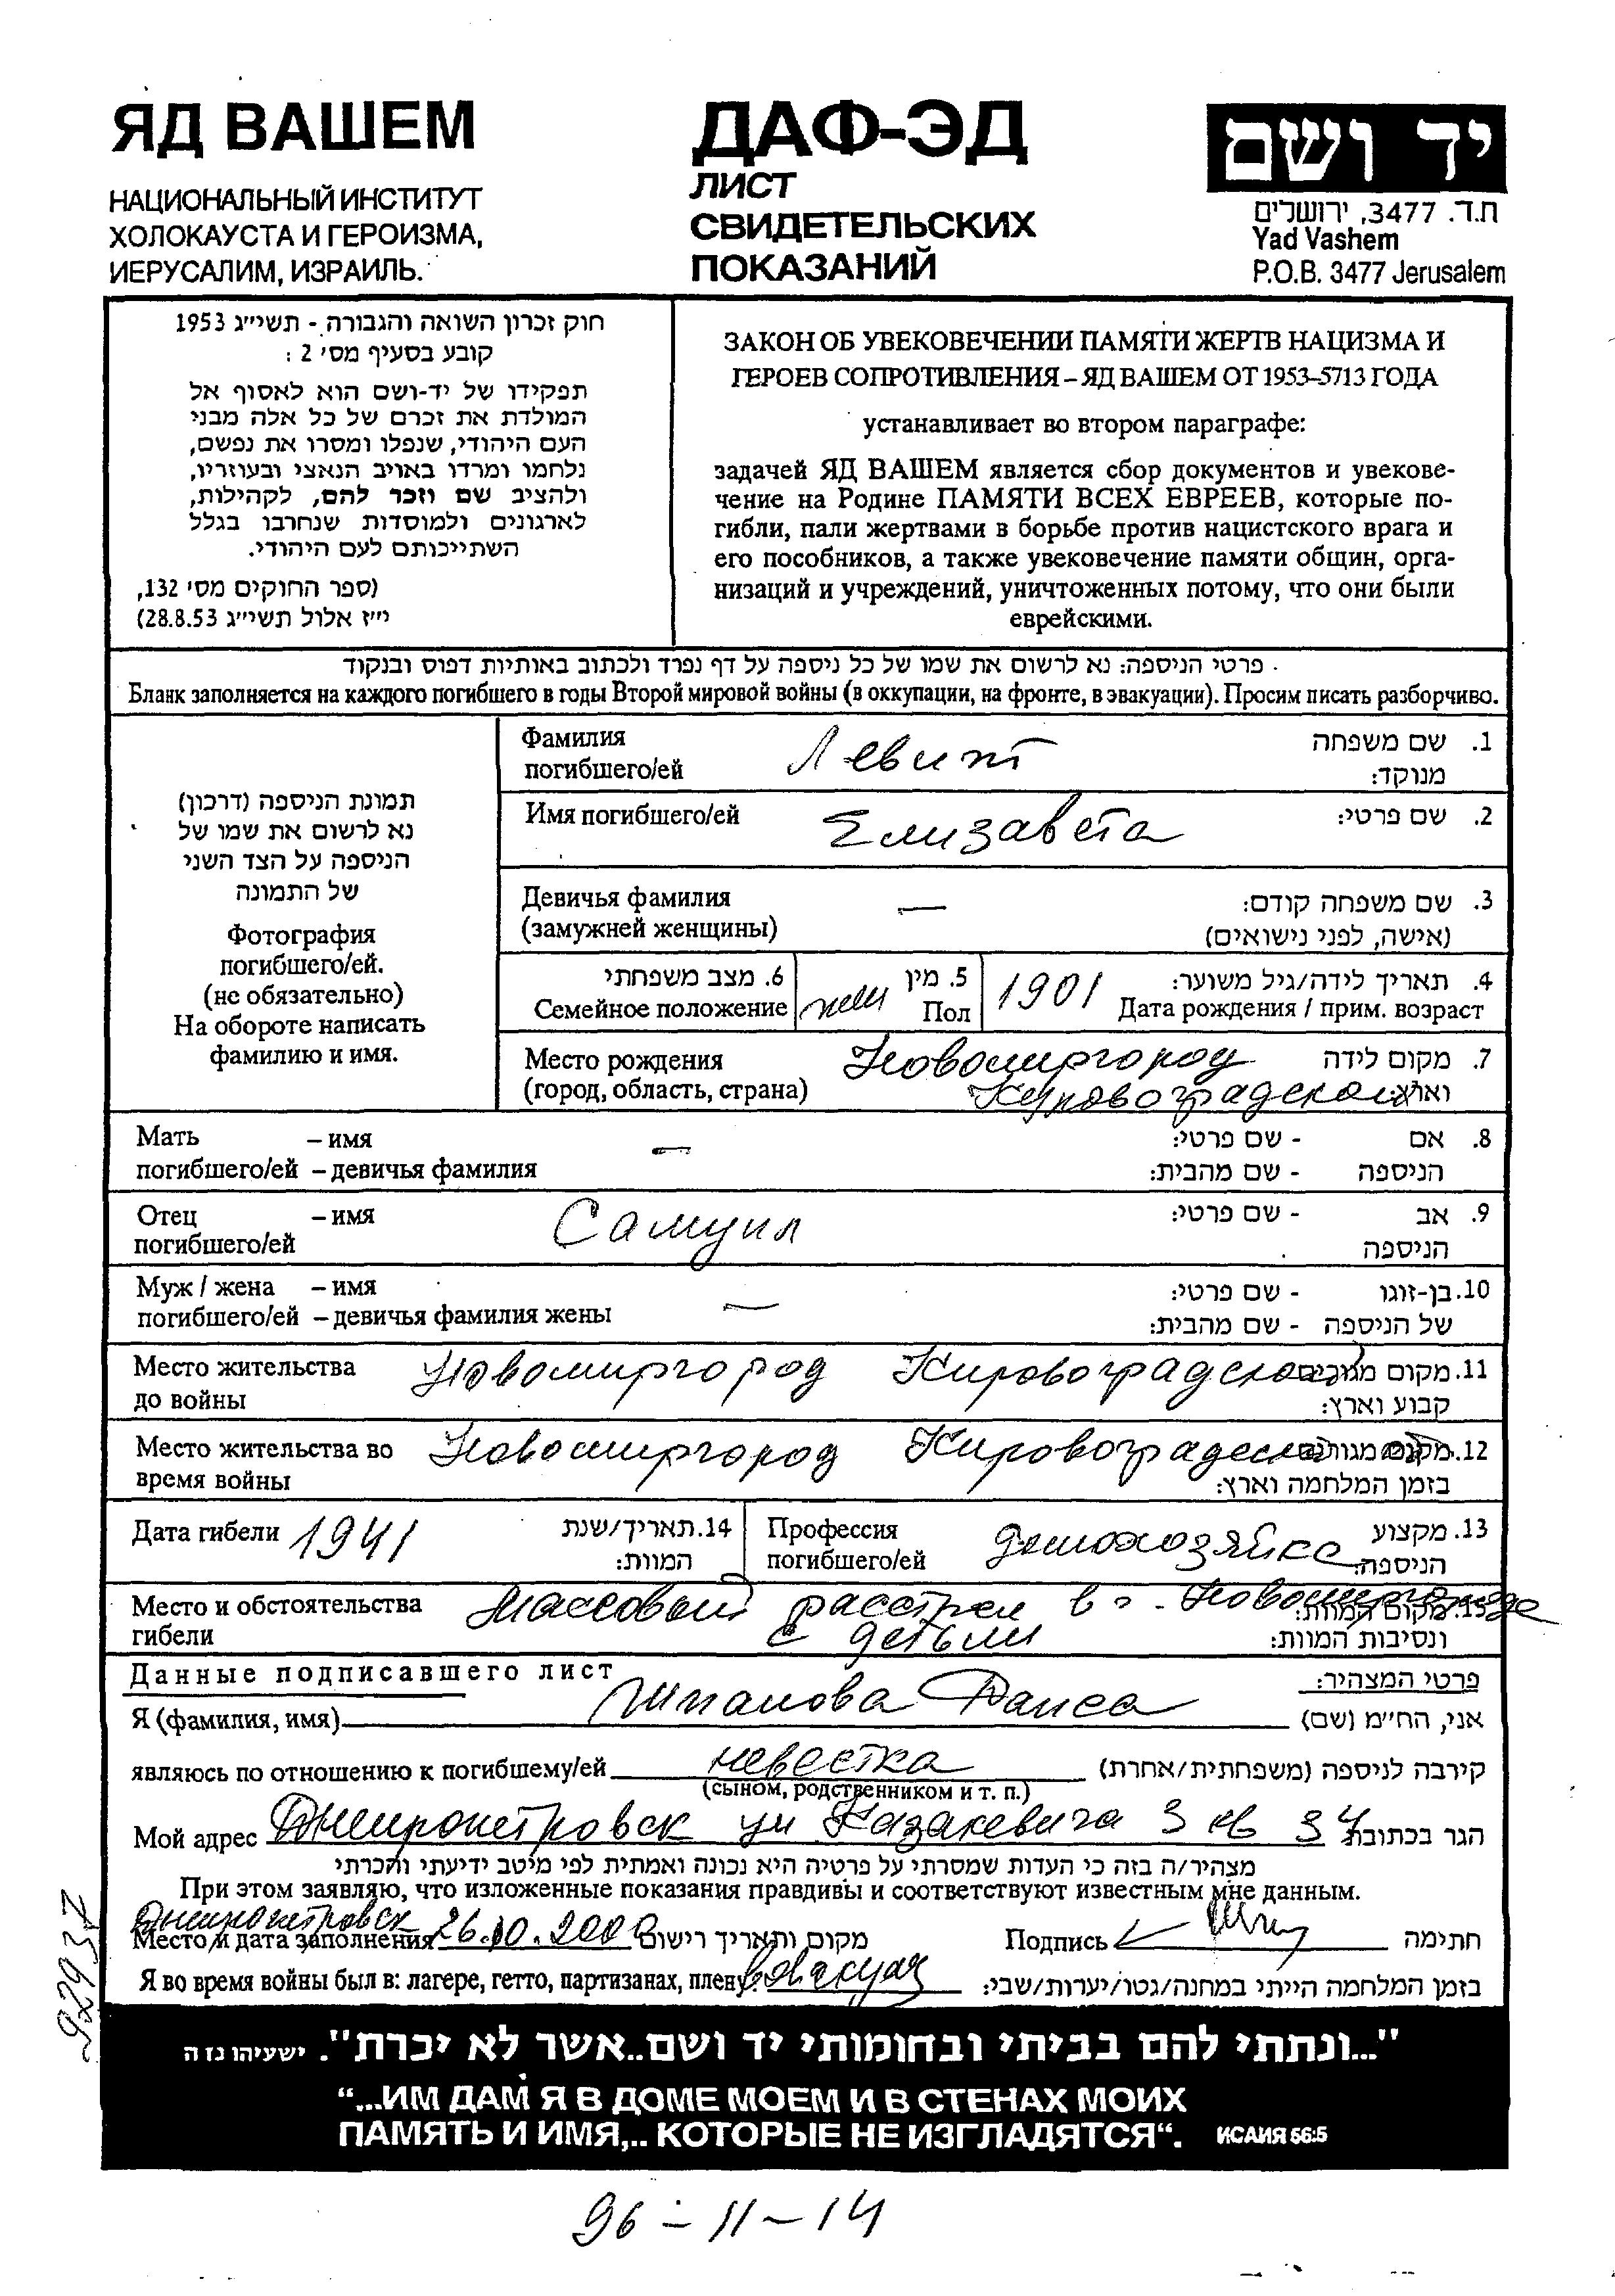 ЯД ВАШЕМ
НАЦИОНАЛЬНЫЙ ИНСТИТУТ
ХОЛОКАУСТА И ГЕРОИЗМА,
ИЕРУСАЛИМ, ИЗРАИЛЬ.
ДАФ-ЭД
ЛИСТ
СВИДЕТЕЛЬСКИХ
ПОКАЗАНИЙ
יד ושם
ת.ד. 3477, ירושלים
Yad Vashem
P.O.B. 3477 Jerusalem
חוק זכרון השואה והגבורה - תשי״ג 1953
קובע בסעיף מס׳ 2 :
תפקידו של יד-ושם הוא לאסוף אל
המולדת את זכרם של כל אלה מבני
העם היהודי, שנפלו ומסרו את נפשם,
נלחמו ומרדו באויב הנאצי ובעוזריו,
ולהציב שם וזכר להם, לקהילות,
לארגונים ולמוסדות שנחרבו בגלל
השתייכותם לעם היהודי.
(ספר החוקים מס׳ 132,
י״ז אלול תשי״ג 28.8.53)
ЗАКОН ОБ УВЕКОВЕЧЕНИИ ПАМЯТИ ЖЕРТВ НАЦИЗМА И
ГЕРОЕВ СОПРОТИВЛЕНИЯ – ЯД ВАШЕМ ОТ 1953–5713 ГОДА
устанавливает во втором параграфе:
задачей ЯД ВАШЕМ является сбор документов и увекове-
чение на Родине ПАМЯТИ ВСЕХ ЕВРЕЕВ, которые по-
гибли, пали жертвами в борьбе против нацистского врага и
его пособников, а также увековечение памяти общин, орга-
низаций и учреждений, уничтоженных потому, что они были
еврейскими.
פרטי הניספה: נא לרשום את שמו של כל ניספה על דף נפרד ולכתוב באותיות דפוס ובנקוד
Бланк заполняется на каждого погибшего в годы Второй мировой войны (в оккупации, на фронте, в эвакуации). Просим писать разборчиво.
תמונת הניספה (דרכון)
נא לרשום את שמו של
הניספה על הצד השני
של התמונה
Фотография
погибшего/ей.
(не обязательно)
На обороте написать
фамилию и имя.
Фамилия Левит 1. שם משפחה
погибшего/ей מנוקד:
Имя погибшего/ей Елизавета 2. שם פרטי:
Девичья фамилия — 3. שם משפחה קודם:
(замужней женщины) (אישה, לפני נישואים)
6. מצב משפחתי 5. מין 4. תאריך לידה/גיל משוער:
Семейное положение жен Пол 1901 Дата рождения / прим. возраст
Место рождения Новомиргород 7. מקום לידה
(город, область, страна) Кировоградской וארץ:
Мать – имя — 8. אם - שם פרטי:
погибшего/ей – девичья фамилия הניספה - שם מהבית:
Отец – имя Самуил 9. אב - שם פרטי:
погибшего/ей הניספה
Муж / жена – имя — 10. בן-זוגו - שם פרטי:
погибшего/ей – девичья фамилия жены של הניספה - שם מהבית:
Место жительства Новомиргород Кировоградской 11. מקום מגורים
до войны קבוע וארץ:
Место жительства во Новомиргород Кировоградской 12. מקום מגורים
время войны בזמן המלחמה וארץ:
Дата гибели 1941 14. תאריך/שנת המוות:
Профессия домохозяйка 13. מקצוע
погибшего/ей הניספה:
Место и обстоятельства Массовый расстрел в г. Новомиргороде 15. מקום המוות:
гибели с детьми ונסיבות המוות:
Данные подписавшего лист פרטי המצהיר:
Я (фамилия, имя) Шпанова Раиса אני, הח״מ (שם)
являюсь по отношению к погибшему/ей невестка קירבה לניספה (משפחתית/אחרת)
(сыном, родственником и т. п.)
Мой адрес Днепропетровск ул Казакевича 3 кв 34 הגר בכתובת
מצהיר/ה בזה כי העדות שמסרתי על פרטיה היא נכונה ואמתית לפי מיטב ידיעתי והכרתי
При этом заявляю, что изложенные показания правдивы и соответствуют известным мне данным.
Днепропетровск
Место и дата заполнения 26.10.2000 מקום ותאריך רישום Подпись חתימה
Я во время войны был в: лагере, гетто, партизанах, плену: в эвакуац בזמן המלחמה הייתי במחנה/גטו/יערות/שבי:
"...ונתתי להם בביתי ובחומותי יד ושם..אשר לא יכרת". ישעיהו נז ה
“...ИМ ДАМ Я В ДОМЕ МОЕМ И В СТЕНАХ МОИХ
ПАМЯТЬ И ИМЯ,.. КОТОРЫЕ НЕ ИЗГЛАДЯТСЯ“. ИСАИЯ 56:5
96-11-14